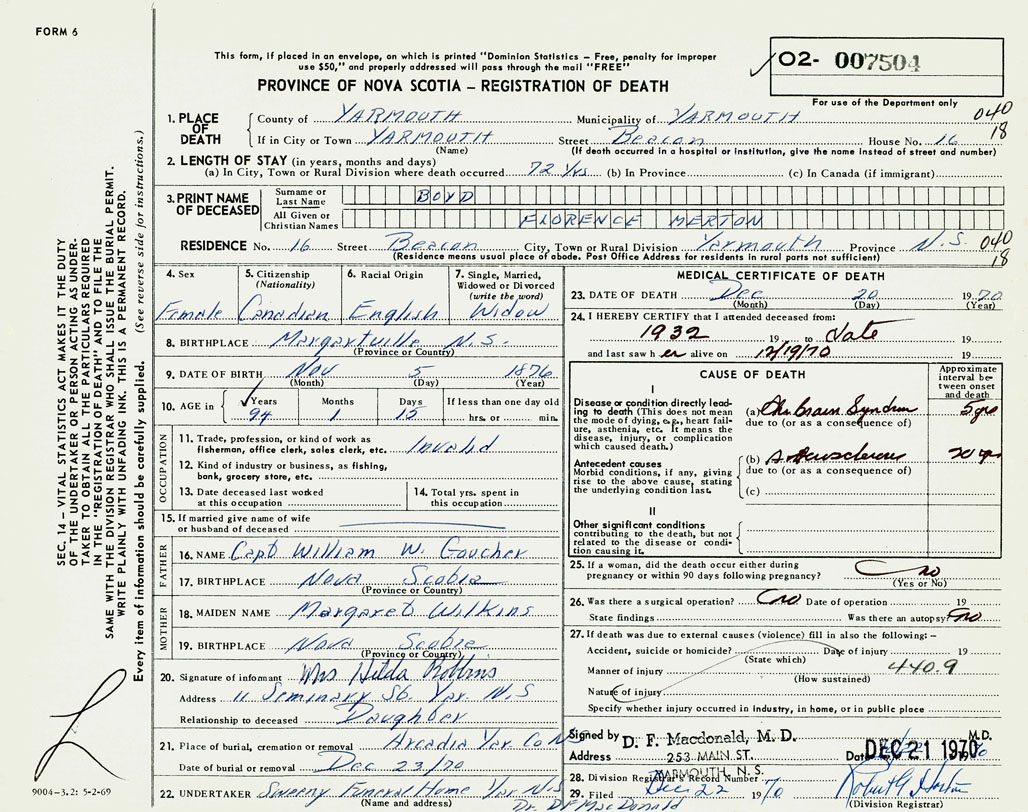 FORM 6
This form, if placed in an envelope, on which is printed "Dominion Statistics – Free, penalty for improper
use $50," and properly addressed will pass through the mail "FREE"
PROVINCE OF NOVA SCOTIA – REGISTRATION OF DEATH
O2- 007504
For use of the Department only
1. PLACE OF DEATH County of YARMOUTH Municipality of YARMOUTH 040
If in City or Town YARMOUTH Street Beacon House No. 16 18
(Name) (If death occurred in a hospital or institution, give the name instead of street and number)
2. LENGTH OF STAY (in years, months and days)
(a) In City, Town or Rural Division where death occurred 72 Yrs (b) In Province (c) In Canada (if immigrant)
3. PRINT NAME OF DECEASED
Surname or Last Name BOYD
All Given or Christian Names FLORENCE MERTON
RESIDENCE No. 16 Street Beacon City, Town or Rural Division Yarmouth Province N.S. 040
(Residence means usual place of abode. Post Office Address for residents in rural parts not sufficient) 18
4. Sex
Female
5. Citizenship
(Nationality)
Canadian
6. Racial Origin
English
7. Single, Married,
Widowed or Divorced
(write the word)
Widow
8. BIRTHPLACE Margartville N.S.
(Province or Country)
9. DATE OF BIRTH Nov 5 1876
(Month) (Day) (Year)
10. AGE in Years Months Days If less than one day old
94 1 15 hrs. or min.
OCCUPATION
11. Trade, profession, or kind of work as
fisherman, office clerk, sales clerk, etc. Invalid
12. Kind of industry or business, as fishing,
bank, grocery store, etc.
13. Date deceased last worked
at this occupation
14. Total yrs. spent in
this occupation
15. If married give name of wife
or husband of deceased
FATHER
16. NAME Capt William W. Goucher
17. BIRTHPLACE Nova Scotia
(Province or Country)
MOTHER
18. MAIDEN NAME Margaret Wilkins
19. BIRTHPLACE Nova Scotia
(Province or Country)
20. Signature of informant Mrs Hilda Robbins
Address 11 Seminary St. Yar. N.S
Relationship to deceased Daughter
21. Place of burial, cremation or removal Arcadia Yar Co N.S
Date of burial or removal Dec 23/70
22. UNDERTAKER Sweeny Funeral Home Yar N.S
(Name and address)
MEDICAL CERTIFICATE OF DEATH
23. DATE OF DEATH Dec 20 1970
(Month) (Day) (Year)
24. I HEREBY CERTIFY that I attended deceased from:
1932 19 to date
and last saw her alive on 12/19/70 19
CAUSE OF DEATH
Approximate
interval be-
tween onset
and death
I
Disease or condition directly lead-
ing to death (This does not mean
the mode of dying, e.g., heart fail-
ure, asthenia, etc. It means the
disease, injury, or complication
which caused death.)
(a) Chr brain Syndrom 5 yrs
due to (or as a consequence of)
Antecedent causes
Morbid conditions, if any, giving
rise to the above cause, stating
the underlying condition last.
(b)
due to (or as a consequence of)
(c)
II
Other significant conditions
contributing to the death, but not
related to the disease or condi-
tion causing it.
25. If a woman, did the death occur either during
pregnancy or within 90 days following pregnancy? no
(Yes or No)
26. Was there a surgical operation? no Date of operation 19
State findings Was there an autopsy? no
27. If death was due to external causes (violence) fill in also the following: –
Accident, suicide or homicide? Date of injury 19
(State which)
Manner of injury 440.9
(How sustained)
Nature of injury
Specify whether injury occurred in industry, in home, or in public place
Signed by D. F. Macdonald, M. D. M.D.
Address 253 MAIN ST. Date DEC 21 1970
YARMOUTH, N. S.
28. Division Registrar's Record Number
29. Filed Dec 22 1970 Robert G Horton
(Division Registrar)
Dr. DF MacDonald
SEC. 14 – VITAL STATISTICS ACT MAKES IT THE DUTY
OF THE UNDERTAKER OR PERSON ACTING AS UNDER-
TAKER TO OBTAIN ALL THE PARTICULARS REQUIRED
IN THE "REGISTRATION OF DEATH" AND TO FILE THE
SAME WITH THE DIVISION REGISTRAR WHO SHALL ISSUE THE BURIAL PERMIT.
WRITE PLAINLY WITH UNFADING INK. THIS IS A PERMANENT RECORD.
Every item of information should be carefully supplied. (See reverse side for instructions.)
9004-3.2: 5-2-69